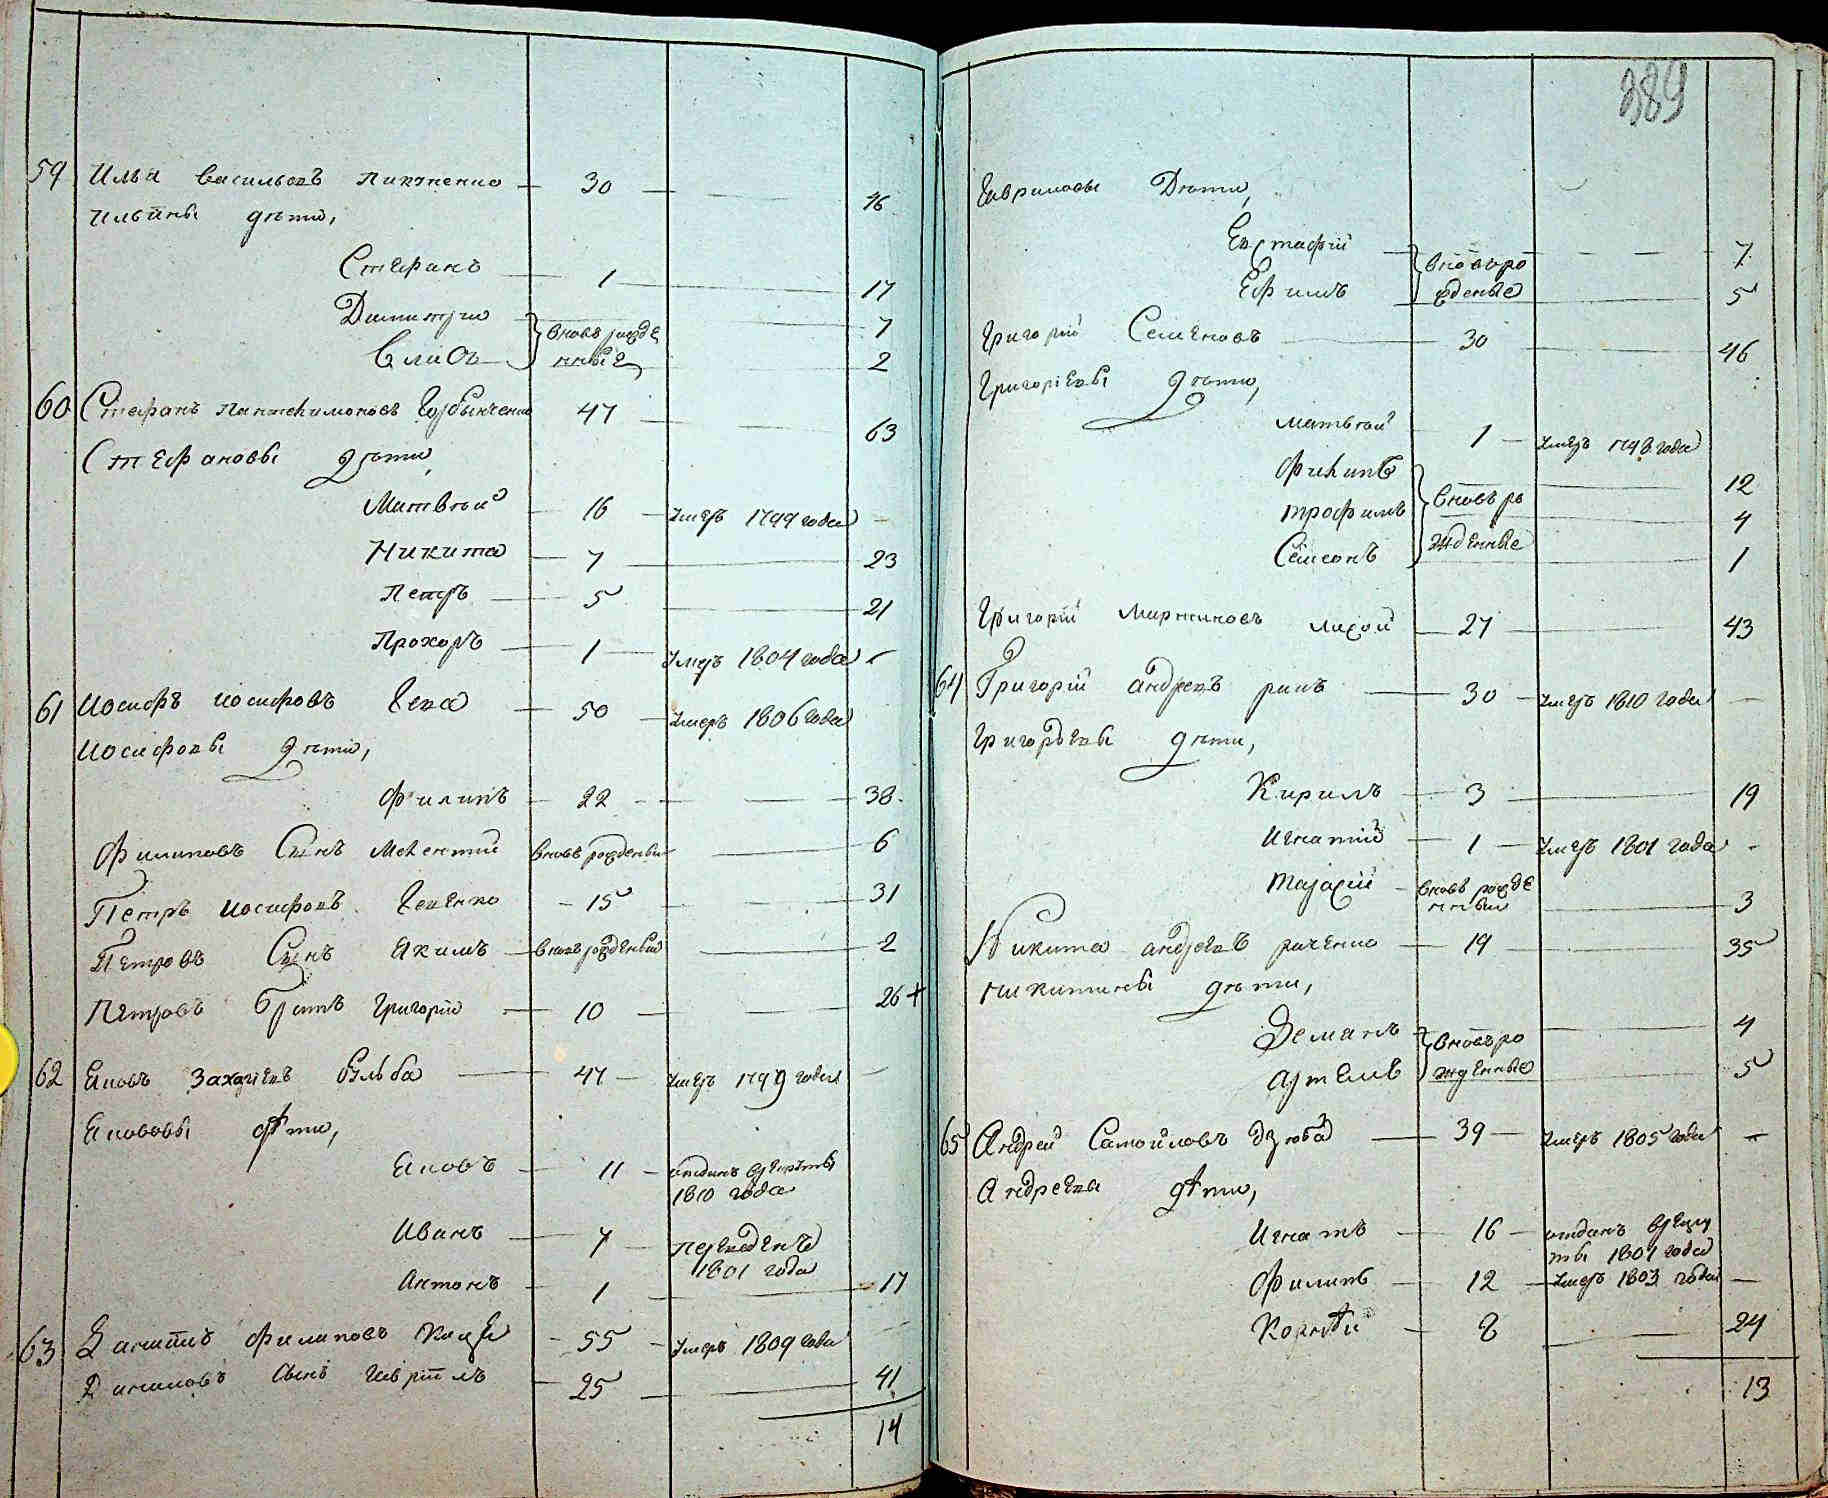 59 Илья Васильевъ 30 46
Ильины дѣти,
Стефанъ 1 17
Димитрий вновь рожде 7
нные 2
60 Стефанъ Пантелимоновъ Горбынченко 47 63
Стефановы дѣти
Матвѣй 16 Умеръ 1799 года
Никита 7 23
Петръ 5 21
Прохоръ 1 Умеръ 1804 года
61 Иосифъ Иосифовъ 50 Умеръ 1806 года
Иосифовы дѣти,
Филипъ 22 38
Филиповъ Сынъ Мелентий вновь рожденый 6
Петръ Иосифовъ 15 31
Петровъ Сынъ Якимъ вновь рожденый 2
Петровъ Братъ Григорий 10 26 +
62 Яковъ Захариевъ Бульба 47 Умеръ 1799 года
Якововы дѣти,
Яковъ 11 отданъ в рекруты
1810 года
Иванъ 7 переведенъ
1801 года
Антонъ 1 17
63 Данило Филиповъ 55 Умеръ 1809 года
Даниловъ Сынъ Гаврилъ 25 41
14
389
Гавриловы Дѣти,
Евстафий вновь ро 7
Ефимъ жденые 5
Григорий Семеновъ 30 46
Григориевы дѣти,
Матвѣй 1 Умеръ 1798 года
Филипъ 12
Трофимъ вновь ро 4
Самсонъ жденные 1
Григорий Мартиновъ Лихой 27 43
64 Григорий Андреевъ 30 Умеръ 1810 года
Григорьевы дѣти,
Кирилъ 3 19
Игнатий 1 Умеръ 1801 года
вновь рожде
нный 3
Никита Андреевъ 19 35
Никитины дѣти,
Деманъ вновь ро 4
Артемъ жденные 5
65 Андрей Самойловъ Дзюба 39 Умеръ 1805 года
Андреева дѣти,
Игнатъ 16 отданъ в рекру
ты 1807 года
Филипъ 12 Умеръ 1803 года
Корнѣй 8 24
13